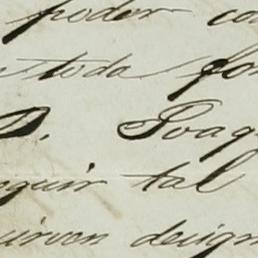 poder co
toda for
D. Joaq
guir tal
deign